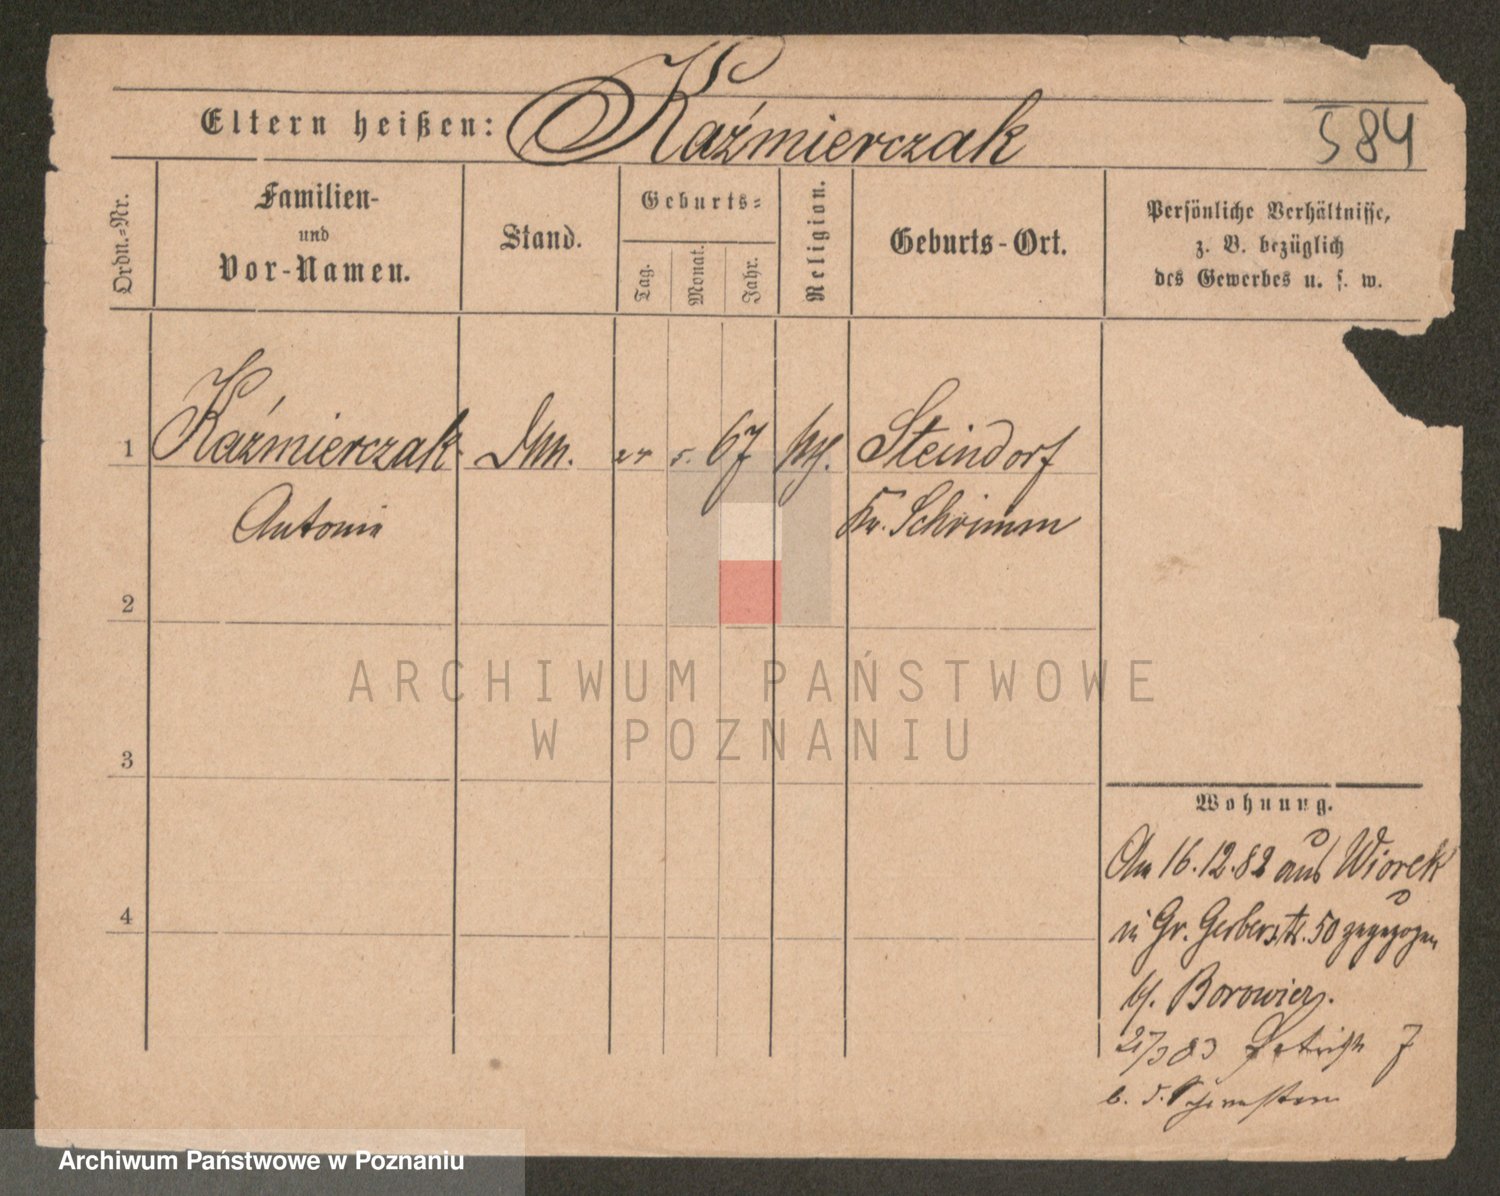 Eltern heißen: Kaźmierczak
584
Ordn.-Nr.
Familien-
und
Vor-Namen.
Stand.
Geburts-
Tag.
Monat.
Jahr.
Religion.
Geburts-Ort.
Persönliche Verhältnisse,
z. B. bezüglich
des Gewerbes u. s. w.
1 Kaźmierczak 5. 67 Steindorf
Antonie Kr. Schrimm
2
3
4
ARCHIWUM PAŃSTWOWE
W POZNANIU
Wohnung.
Am 16.12.82 aus Wiorek
in Gr. Gerberstr. 50 zugezogen
b/. Borowicz.
27/3 83
Archiwum Państwowe w Poznaniu